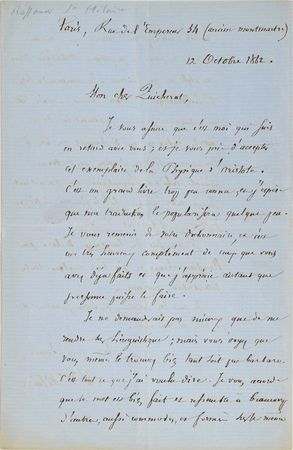 Paris, Rue de l'Empereur 34 (ancien montmartre)
12 Octobre 1862.
Mon cher Quicherat,
Je vous assure que c'est moi qui suis
en retard avec vous ; et je vous prie d'accepter
cet exemplaire de la Physique d'Aristote.
C'est un grand livre trop peu connu, et j'espère
que ma traduction le popularisera quelque peu.
Je vous remercie de votre dictionnaire, et c'est
un très heureux complément de ceux que vous
avez déjà faits et que j'apprécie autant que
personne puisse le faire.
Je ne demanderais pas mieux que de me
rendre sur linguistique ; mais vous voyez que
vous même le trouvez tant soit peu barbare.
C'est tout ce que j'ai voulu dire. Je vous accorde
que le mot est bien fait et ressemble à beaucoup
d'autres, aussi commodes, et formés sur le même